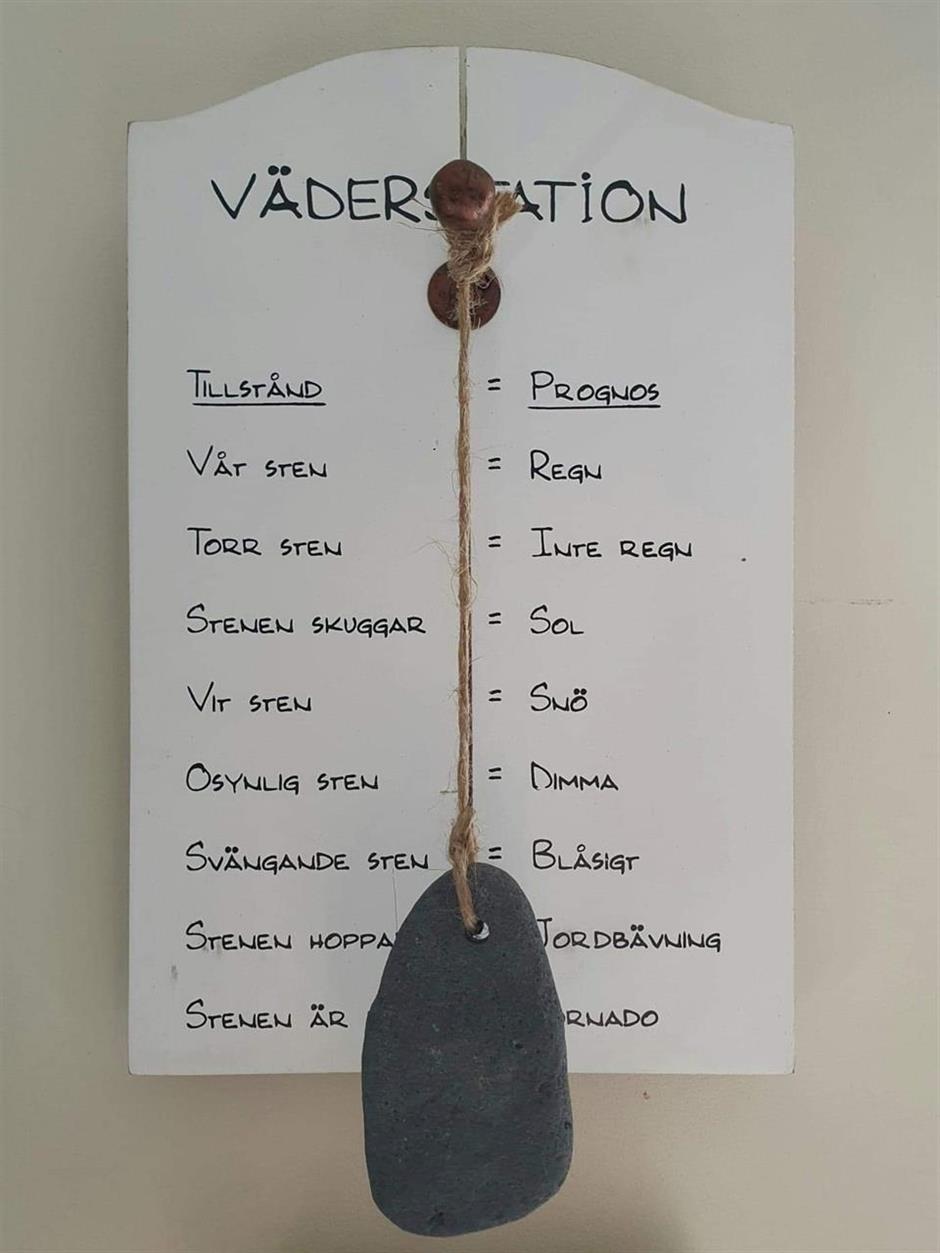 VÄDERSTATION
TILLSTÅND = PROGNOS
VÅT STEN = REGN
TORR STEN = INTE REGN
STENEN SKUGGAR = SOL
VIT STEN = SNÖ
OSYNLIG STEN = DIMMA
SVÄNGANDE STEN = BLÅSIGT
STENEN HOPPA JORDBÄVNING
STENEN ÄR ORNADO